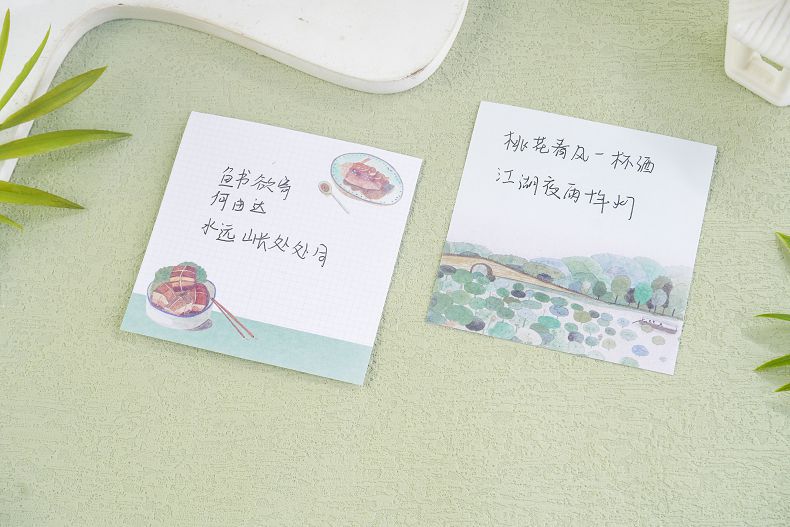 鱼书欲寄
何由达
水远山长处处同
桃花春风一杯酒
江湖夜雨十年灯